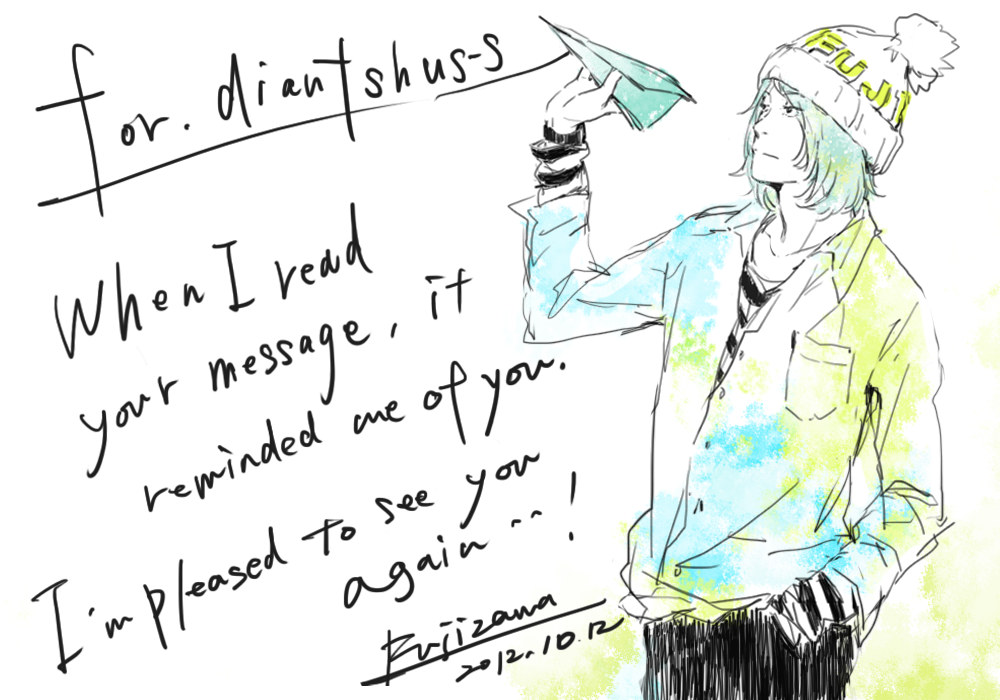 for. diantshus-s
When I read
your message, it
reminded me of you.
I'm pleased to see you
again..!
Fujizawa
2012.10.12
FUJI